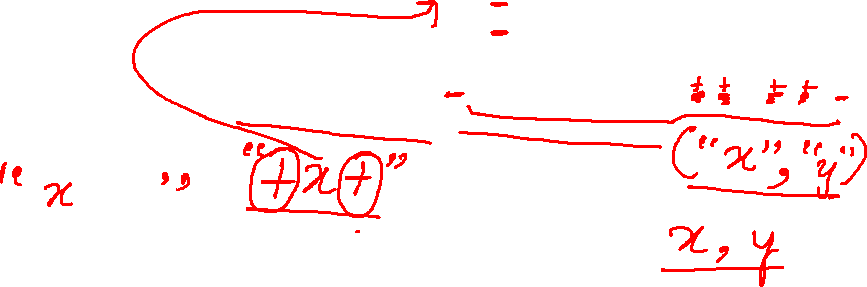 =
- ++ ++ -
" x " "+x+" ("x","y")
x, y